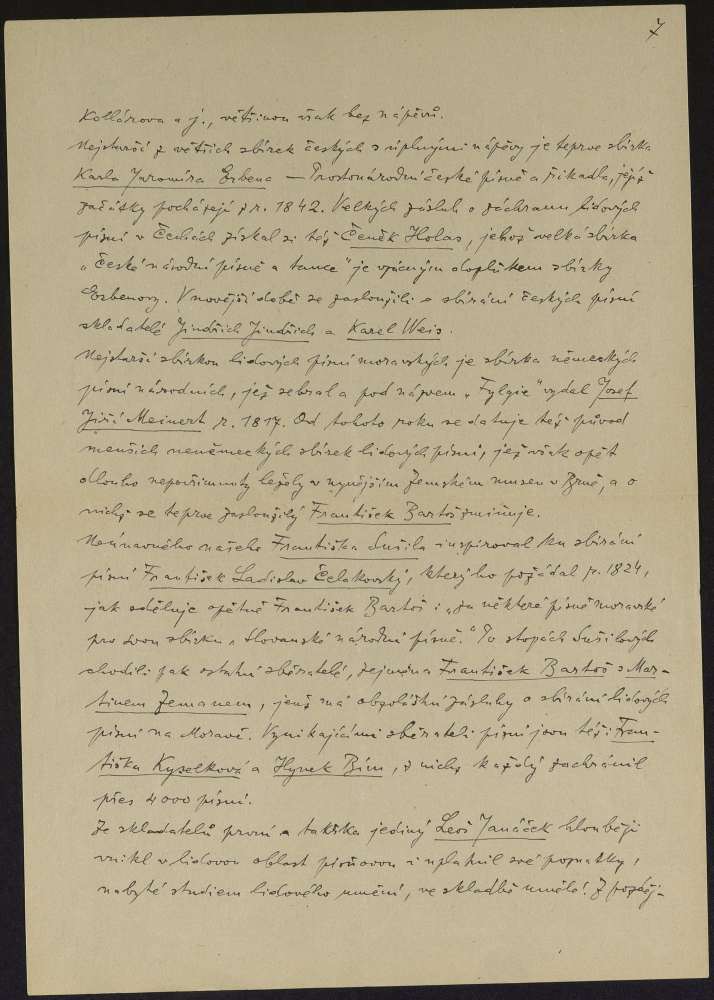 7
Kollárova a j., většinou však bez nápěvů.
Nejstarší z větších sbírek českých s úplnými nápěvy je teprve sbírka
Karla Jaromíra Erbena — Prostonárodní české písně a říkadla, jejíž
začátky pocházejí z r. 1842. Velkých zásluh o záchranu lidových
písní v Čechách získal si též Čeněk Holas, jehož velká sbírka
„České národní písně a tance" je vzácným doplňkem sbírky
Erbenovy. V novější době se zasloužili o sbírání českých písní
skladatelé Jindřich Jindřich a Karel Weis.
Nejstarší sbírkou lidových písní moravských je sbírka německých
písní národních, jež sebral a pod názvem „Fylgie" vydal Josef
Jiří Meinert r. 1817. Od tohoto roku se datuje též původ
menších neněmeckých sbírek lidových písní, jež však opět
dlouho nepovšimnuty ležely v nynějším Zemském museu v Brně, a o
nichž se teprve zasloužilý František Bartoš zmiňuje.
Neúnavného našeho Františka Sušila inspiroval ku sbírání
písní František Ladislav Čelakovský, který ho požádal r. 1824,
jak sděluje opětně František Bartoš: „za některé písně moravské
pro svou sbírku „Slovanské národní písně." Po stopách Sušilových
chodili pak ostatní sběratelé, zejména František Bartoš s Mar-
tinem Zemanem, jenž má obzvláštní zásluhy o sbírání lidových
písní na Moravě. Vynikajícími sběrateli písní jsou též: Fran-
tiška Kyselková a Hynek Bím, z nichž každý zachránil
přes 4000 písní.
Ze skladatelů první a takřka jediný Leoš Janáček hlouběji
vnikl v lidovou oblast písňovou a uplatnil své poznatky,
nabyté studiem lidového umění, ve skladbě umělé. Z pozděj-